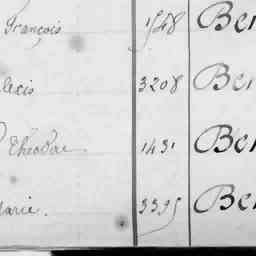 François 1548 Ber
lexis 3208 Ber
Theodore 1431 Ber
arie. 3395 Ber